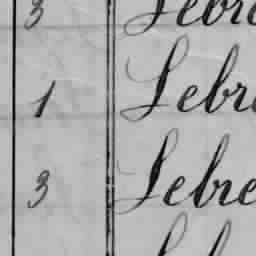 3 Febr
1 Febr
3 Febre